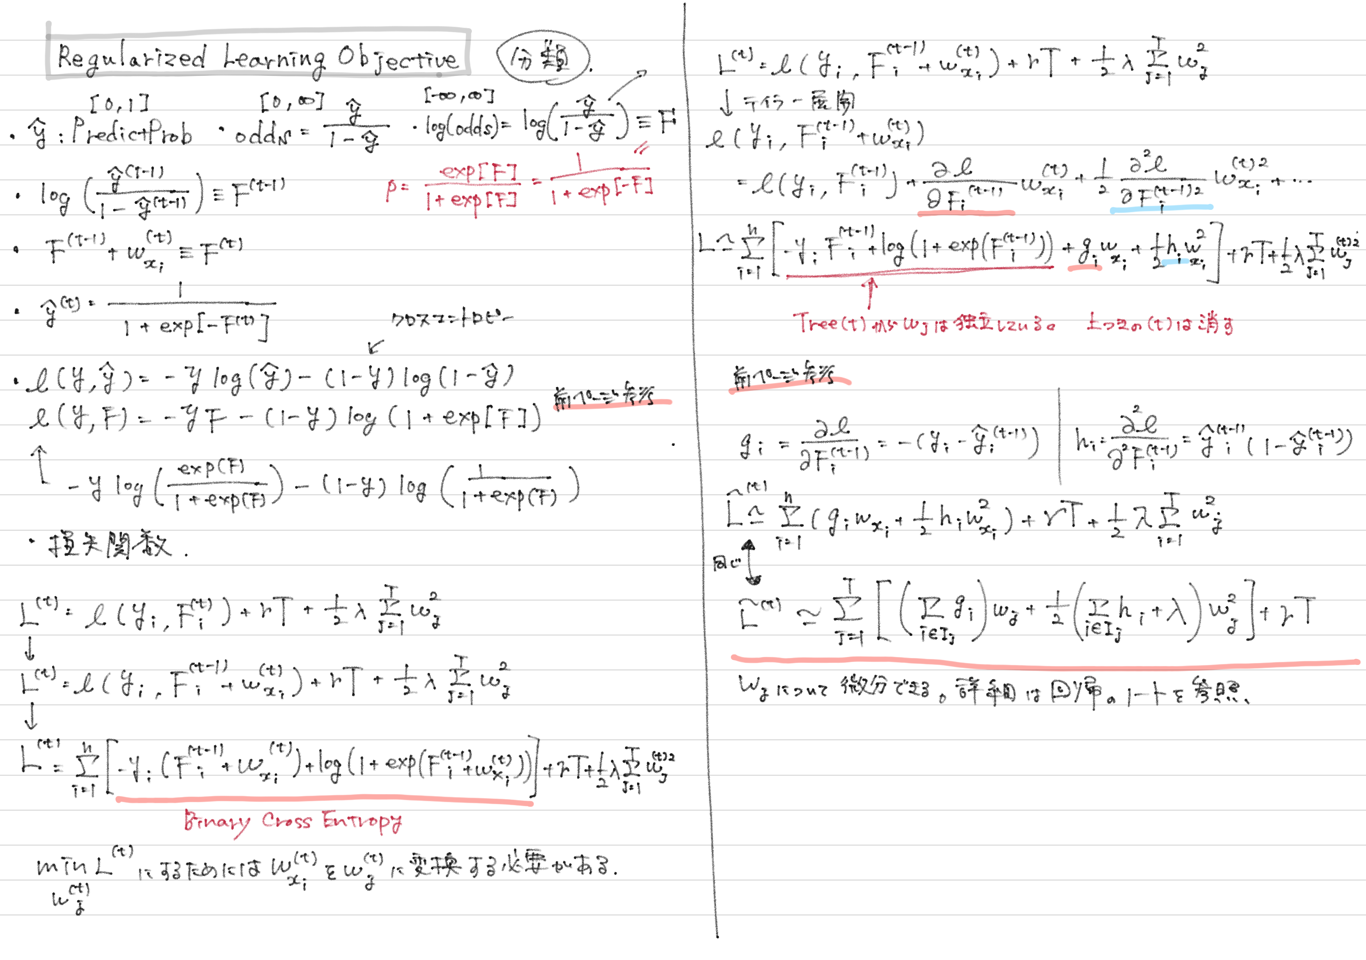 Regularized Learning Objective 分類.
[0,1] [0,∞] [-∞,∞]
・ŷ : PredictProb ・odds = ŷ/(1-ŷ) ・log(odds) = log(ŷ/(1-ŷ)) ≡ F
p = exp[F]/(1+exp[F]) = 1/(1+exp[-F])
・log(ŷ^(t-1)/(1-ŷ^(t-1))) ≡ F^(t-1)
・F^(t-1) + w_{x_i}^(t) ≡ F^(t)
・ŷ^(t) = 1/(1+exp[-F^(t)])
クロスエントロピー
・ℓ(y,ŷ) = -y log(ŷ) - (1-y) log(1-ŷ)
前ページ参考
ℓ(y,F) = -yF - (1-y) log(1+exp[F])
↑ -y log(exp(F)/(1+exp(F))) - (1-y) log(1/(1+exp(F)))
・損失関数.
L^(t) = ℓ(y_i, F_i^(t)) + rT + 1/2 λ Σ_{j=1}^T w_j^2
↓
L^(t) = ℓ(y_i, F_i^(t-1) + w_{x_i}^(t)) + rT + 1/2 λ Σ_{j=1}^T w_j^2
↓
L^(t) = Σ_{i=1}^n [-y_i (F_i^(t-1) + w_{x_i}^(t)) + log(1+exp(F_i^(t-1) + w_{x_i}^(t)))] + rT + 1/2 λ Σ_{j=1}^T w_j^(t)2
Binary Cross Entropy
min L^(t) にするためには w_{x_i}^(t) を w_j^(t) に変換する必要がある.
w_j^(t)
L^(t) = ℓ(y_i, F_i^(t-1) + w_{x_i}^(t)) + rT + 1/2 λ Σ_{j=1}^T w_j^2
↓ テイラー展開
ℓ(y_i, F_i^(t-1) + w_{x_i}^(t))
= ℓ(y_i, F_i^(t-1)) + ∂ℓ/∂F_i^(t-1) w_{x_i}^(t) + 1/2 ∂²ℓ/∂F_i^(t-1)2 w_{x_i}^(t)2 + …
L ≃ Σ_{i=1}^n [-y_i F_i^(t-1) + log(1+exp(F_i^(t-1))) + g_i w_{x_i} + 1/2 h_i w_{x_i}^2] + rT + 1/2 λ Σ_{j=1}^T w_j^(t)2
↑
Tree(t)から w_j は独立している。 よってこの(t)は消す
前ページ参考
g_i = ∂ℓ/∂F_i^(t-1) = -(y_i - ŷ_i^(t-1)) | h_i = ∂²ℓ/∂²F_i^(t-1) = ŷ_i^(t-1) (1-ŷ_i^(t-1))
L̃^(t) ≃ Σ_{i=1}^n (g_i w_{x_i} + 1/2 h_i w_{x_i}^2) + rT + 1/2 λ Σ_{i=1}^T w_j^2
同じ ↕
L̃^(t) ≃ Σ_{j=1}^T [(Σ_{i∈I_j} g_i) w_j + 1/2 (Σ_{i∈I_j} h_i + λ) w_j^2] + rT
w_j について微分できる。詳細は回帰のノートを参照.